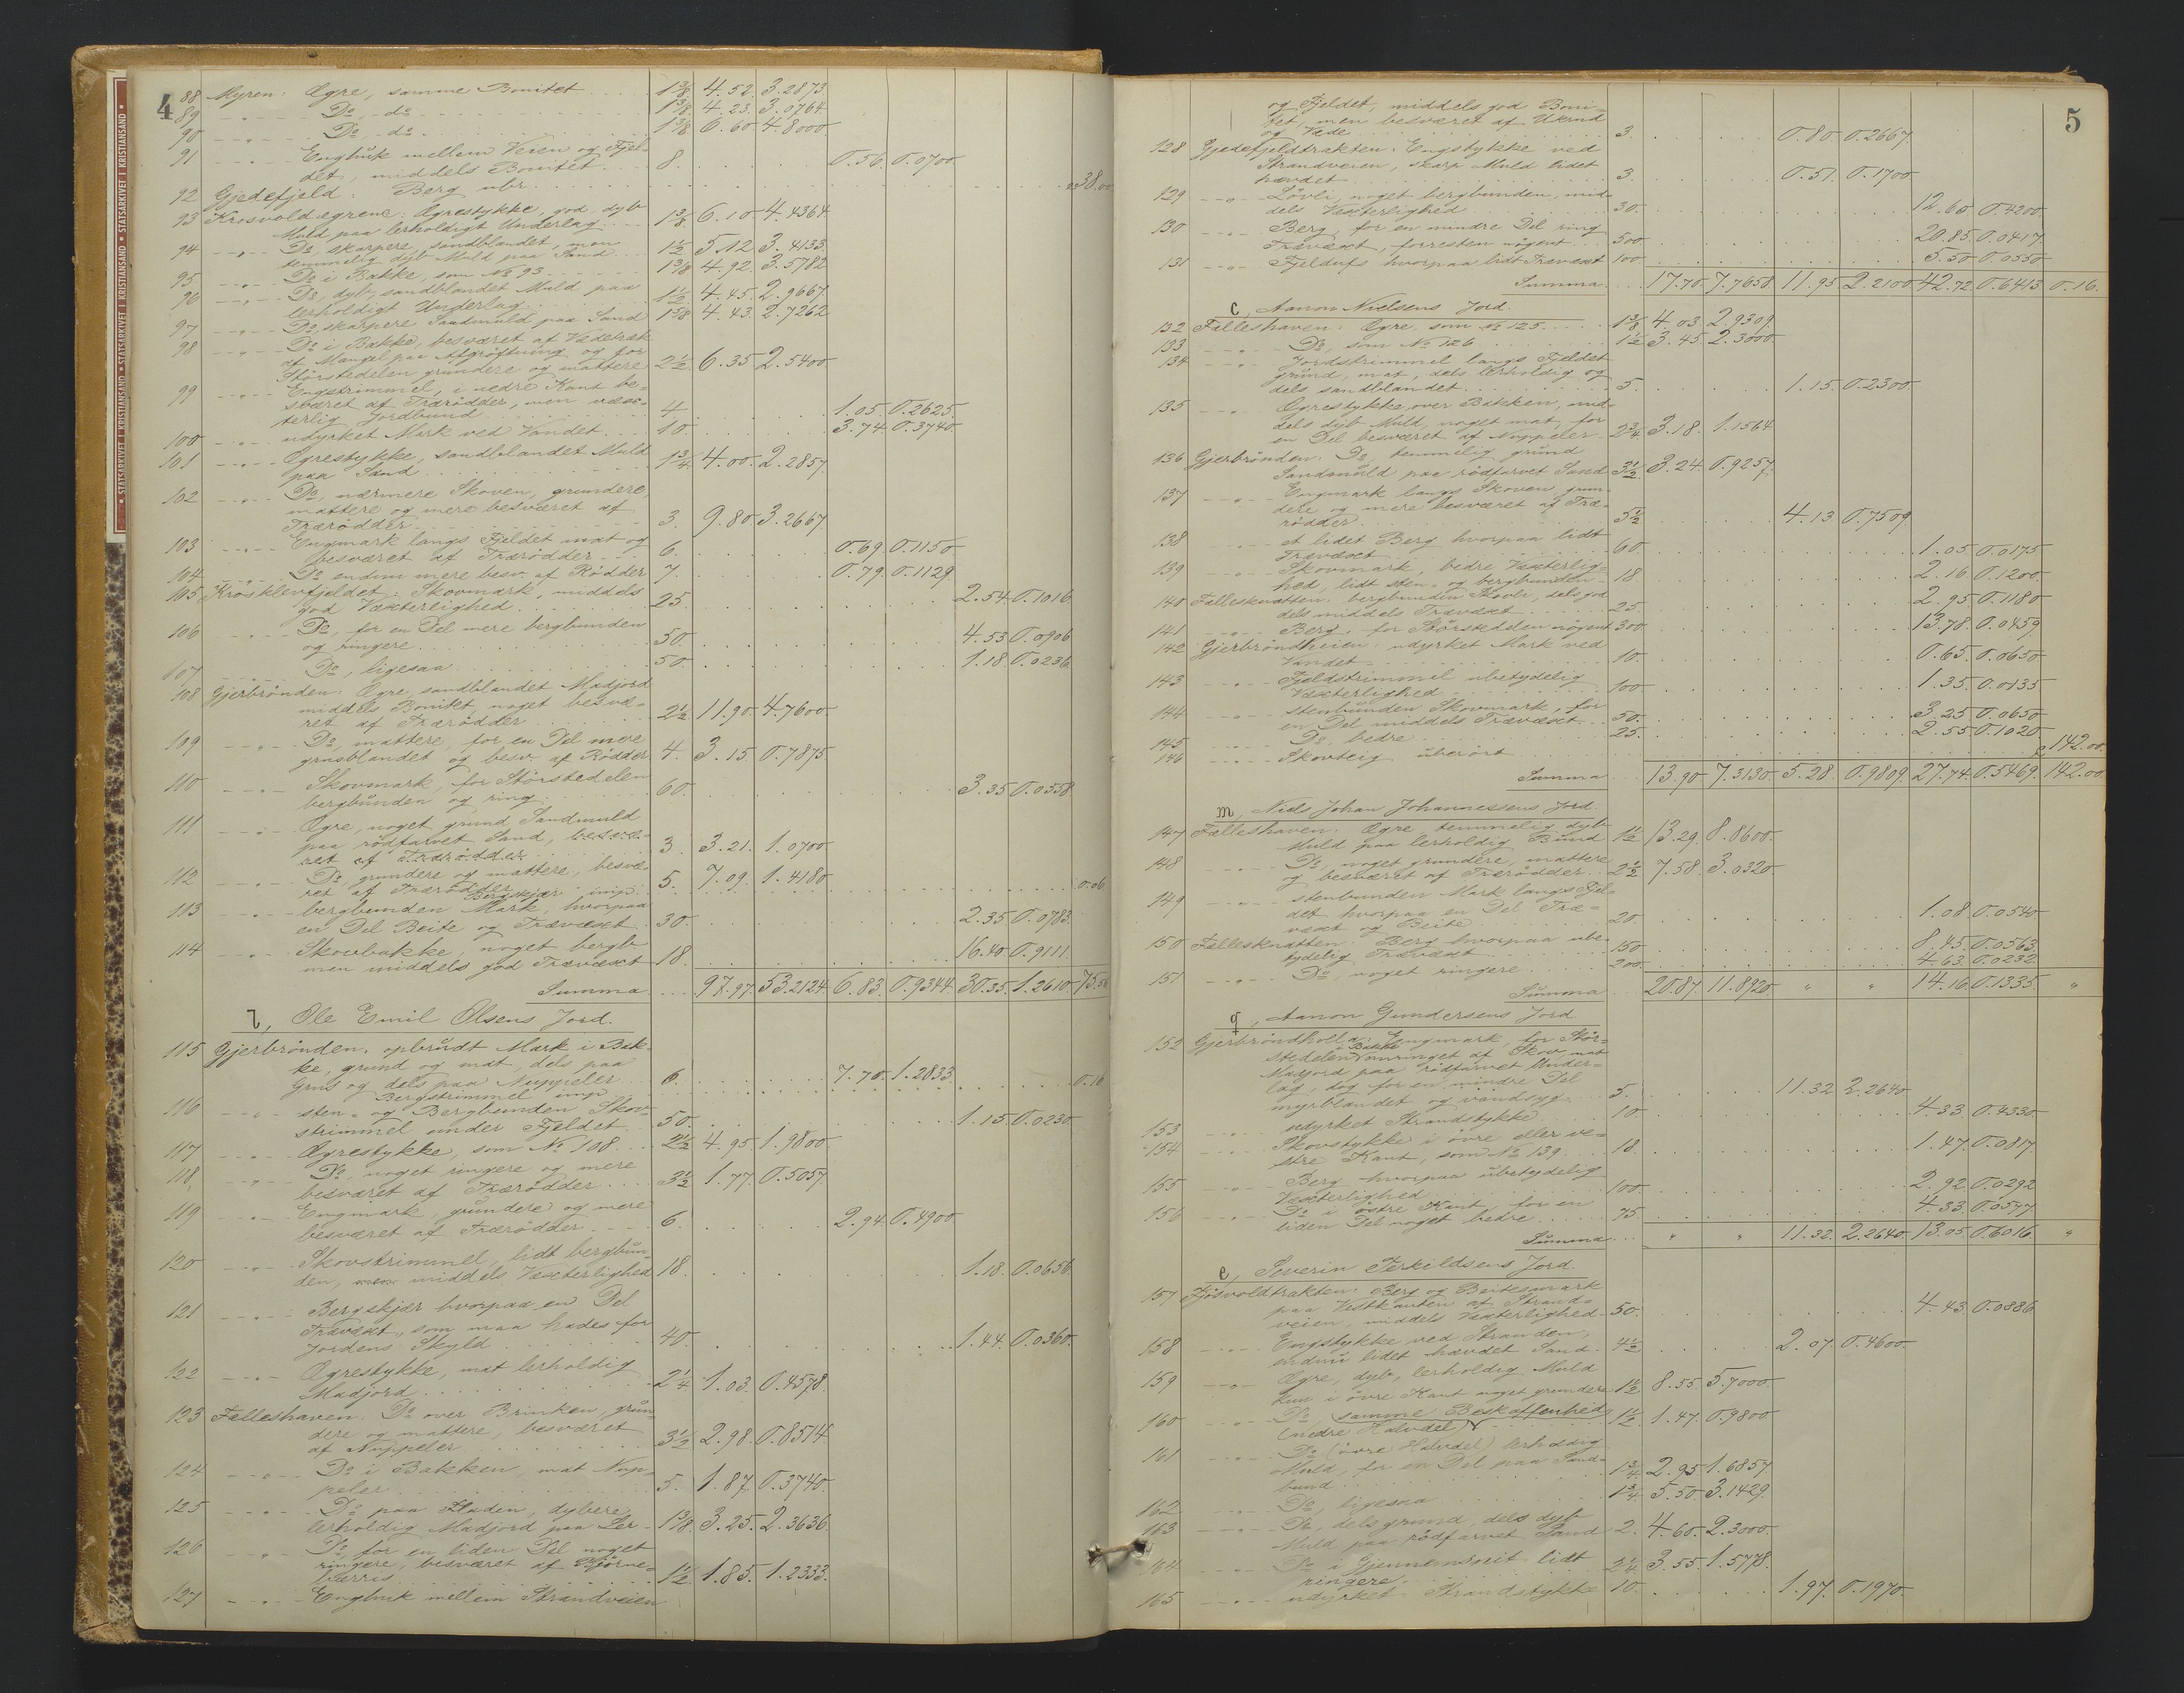 4
88 Myren: Agre, samme Bonitet 1 3/8 4.52. 3.2873.
89 Do, do 1 3/8 4.23. 3.0764.
90 Do, do 1 3/8 6.60 4.8000.
91 Enghuk mellem Veien og Fjel-
det, middels Bonitet 8. 0.56. 0.0700.
92 Gjedefjeld: Berg ubr. 38.00
93 Krosvoldagrene: Agrestykke, god dyb
Muld paa lerholdigt Underlag 1 3/8 6.10 4.4364
94 Do, skarpere, sandblandet, men
temmelig dyb Muld paa Sand 1 1/2 5.12 3.4133.
95 Do i Bakke, som No 93 1 3/8 4.92. 3.5782
96 Do, dyb, sandblandet Muld paa
lerholdigt Underlag 1 1/2 4.45. 2.9667.
97 Do, skarpere Sandmuld paa Sand 1 5/8 4.43. 2.7262
98 Do i Bakke, besværet af Vædetræk
af Mangel paa Afgrøftning og for
Størstedelen grundere og mattere 2 1/2 6.35 2.5400.
99 Engstrimmel, i nedre Kant be-
sværet af Trærødder, men væx-
terlig Jordbund 4. 1.05. 0.2625.
100 udyrket Mark ved Vandet 10. 3.74. 0.3740.
101 Agrestykke, sandblandet Muld
paa Sand 1 3/4 4.00. 2.2857.
102 Do, nærmere Skoven, grundere,
mattere og mere besværet af
Trærødder 3. 9.80 3.2667.
103 Engmark langs Fjeldet mat og
besværet af Trærødder 6. 0.69. 0.1150.
104 Do endnu mere besv. af Rødder 7. 0.79. 0.1129.
105 Krosklevfjeldet: Skovmark, middels
god Væxterlighed 25. 2.54. 0.1016.
106 Do, for en Del mere bergbunden
og ringere 50. 4.53. 0.0906
107 Do, ligesaa 50. 1.18. 0.0236.
108 Gjerbrønden: Agre, sandblandet Madjord
middels Bonitet, noget besvæ-
ret af Trærødder 2 1/2 11.90. 4.7600.
109 Do, mattere, for en Del mere
grusblandet og besv. af Rødder 4. 3.15. 0.7875
110 Skovmark, for Størstedelen
bergbunden og ring 60. 3.35 0.0558
111 Agre, noget grund Sandmuld
paa rødfarvet Sand, besvæ-
ret af Trærødder 3. 3.21. 1.0700.
112 Do, grundere og mattere, besvæ-
ret af Trærødder 5. 7.09. 1.4180
Bergskjær imp: 0.06.
113 bergbunden Mark, hvorpaa
en Del Beite og Trævæxt 30. 2.35 0.0783.
114 Skovbakke, noget bergb.
men middels god Trævæxt 18. 16.40 0.9111.
Summa 97.97. 53.2124. 6.83. 0.9344. 30.35. 1.2610. 75.56
l, Ole Emil Olsens Jord.
115 Gjerbrønden: opbrudt Mark i Bak-
ke, grund og mat, dels paa
Grus og dels paa Nuppeler 6. 7.70. 1.2833
Bergstrimmel imp 0.16
116 sten- og Bergbunden Skov-
strimmel under Fjeldet 50. 1.15. 0.0230.
117 Agrestykke, som No 108 2 1/2 4.95. 1.9800.
118. Do, noget ringere og mere
besværet af Trærødder 3 1/2 1.77. 0.5057
119 Engmark, grundere og mere
besværet af Trærødder 6. 2.94. 0.4900.
120 Skovstrimmel, lidt bergbun-
den, middels Væxterlighed 18. 1.18. 0.0656.
121 Bergskjær hvorpaa en Del
Trævæxt, som maa hades for
Jordens Skyld 40. 1.44. 0.0360.
122 Agrestykke, mat lerholdig
Madjord 2 1/4 1.03. 0.4578.
123 Fælleshaven: Do over Brinken, grun-
dere og mattere, besværet
af Nuppeler 3 1/2 2.98. 0.8514.
124 Do i Bakken, mat Nup-
peler 5. 1.87. 0.3740.
125 Do paa Fladen, dybere
lerholdig Madjord paa Ler 1 3/8 3.25. 2.3636.
126 Do for en liden Del noget
ringere, besværet af Bjørne-
bærris 1 1/2 1.85. 1.2333.
127 Enghuk mellem Strandveien
5
og Fjeldet, middels god Boni-
tet, men besværet af Ukrud
og Væde 3. 0.80 0.2667.
128 Gjedefjeldtrakten: Engstykke ved
Strandveien, skarp Muld lidet
hævdet 3. 0.51. 0.1700.
129 Løvli, noget bergbunden, mid-
dels Væxterlighed 30. 12.60 0.4200.
130 Berg, for en mindre Del ring
Trævæxt, forresten nøgent 500. 20.85. 0.0417.
131 Fjeldufs hvorpaa lidt Trævæxt 100. 5.50 0.0550
Summa 17.70. 7.7658 11.95. 2.2100 42.72. 0.6413 0.16.
c, Aanon Nielsens Jord.
132 Fælleshaven: Agre, som No 125 1 3/8 4.03. 2.9309
133 Do, som No 126 1 1/2 3.45. 2.3000.
134 Jordstrimmel langs Fjeldet
grund, mat, dels lerholdig og
dels sandblandet 5. 1.15 0.2300.
135 Agrestykke over Bakken, mid-
dels dyb Muld, noget mat, for
en Del besværet af Nuppeler 2 3/4 3.18. 1.1564.
136 Gjerbrønden: Do, temmelig grund
Sandmuld paa rødfarvet Sand 3 1/2 3.24. 0.9257.
137 Engmark langs Skoven, grun-
dere og mere besværet af Træ-
rødder 5 1/2 4.13. 0.7509.
138 et lidet Berg hvorpaa lidt
Trævæxt 60. 1.05. 0.0175.
139 Skovmark, bedre Væxterlig-
hed, lidt sten- og bergbunden 18 2.16. 0.1200.
140 Fællesknatten: bergbunden Skovli, dels god
dels middels Trævæxt 25. 2.95. 0.1180
141 Berg, for Størstedelen nøgent 300. 13.78. 0.0459.
142 Gjerbrøndheien: udyrket Mark ved
Vandet 10. 0.65. 0.0650
143 Fjeldstrimmel ubetydelig
Væxterlighed 100. 1.35. 0.0135
144 stenbunden Skovmark, for
en Del middels Trævæxt 50. 3.25 0.0650
145 Do, bedre 25. 2.55 0.1020
146 Skovteig uberørt 142.00.
Summa 13.90 7.3130. 5.28. 0.9809. 27.74. 0.5469. 142.00
m, Niels Johan Johannessens Jord.
147 Fælleshaven: Agre temmelig dyb
Muld paa lerholdig Bund 1 1/2 13.29. 8.8600.
148 Do, noget grundere, mattere
og besværet af Trærødder 2 1/2 7.58. 3.0320.
149 stenbunden Mark langs Fjel-
det hvorpaa en Del Træ-
væxt og Beite 20 1.08. 0.0540
150 Fællesknatten: Berg hvorpaa ube-
tydelig Trævæxt 150. 8.45. 0.0563.
151 Do, noget ringere 200. 4.63. 0.0232.
Summa 20.87. 11.8920. " " 14.16. 0.1335. "
q, Aanon Gundersens Jord
152 Gjerbrøndholla: Engmark, for Stør-
stedelen i Bakke omringet af Skov, mat
Madjord paa rødfarvet Under-
lag, dog for en mindre Del
myrblandet og vandsyg 5. 11.32 2.2640.
153 udyrket Strandstykke 10. 4.33. 0.4330.
154 Skovstykke i øvre eller ve-
stre Kant, som No 139 18. 1.47. 0.0817.
155 Berg hvorpaa ubetydelig
Væxterlighed 100. 2.92. 0.0292
156 Do i østre Kant, for en
liden Del noget bedre 75. 4.33. 0.0577
Summa " " 11.32. 2.2640. 13.05. 0.6016 "
e, Severin Terkildsens Jord.
157 Fjøsvoldtrakten: Berg og Beitesmark
paa Vestkanten af Strand-
veien, middels Væxterlighed 50. 4.43. 0.0886.
158 Engstykke ved Stranden,
endnu lidet hævdet Sand 4 1/2 2.07. 0.4600.
159 Agre, dyb, lerholdig Muld
kun i øvre Kant noget grundere 1 1/2 8.55. 5.7000.
160 Do, samme Beskaffenhed
(nedre Halvdel) 1 1/2 1.47. 0.9800.
161 Do (øvre Halvdel) lerholdig
Muld, for en Del paa Sand-
bund 1 3/4 2.95 1.6857.
162 Do, ligesaa 1 3/4 5.50. 3.1429.
163 Do, dels grund, dels dyb
Muld paa rødfarvet Sand 2. 4.60. 2.3000.
164 Do i Gjennemsnit lidt
ringere 2 1/4 3.55. 1.5778.
165 udyrket Strandstykke 10. 1.97. 0.1970.
• STATSARKIVET I KRISTIANSAND • STATSARKIVET I KRISTIANSAND • STATSARKIVET I KRISTIANSAND •